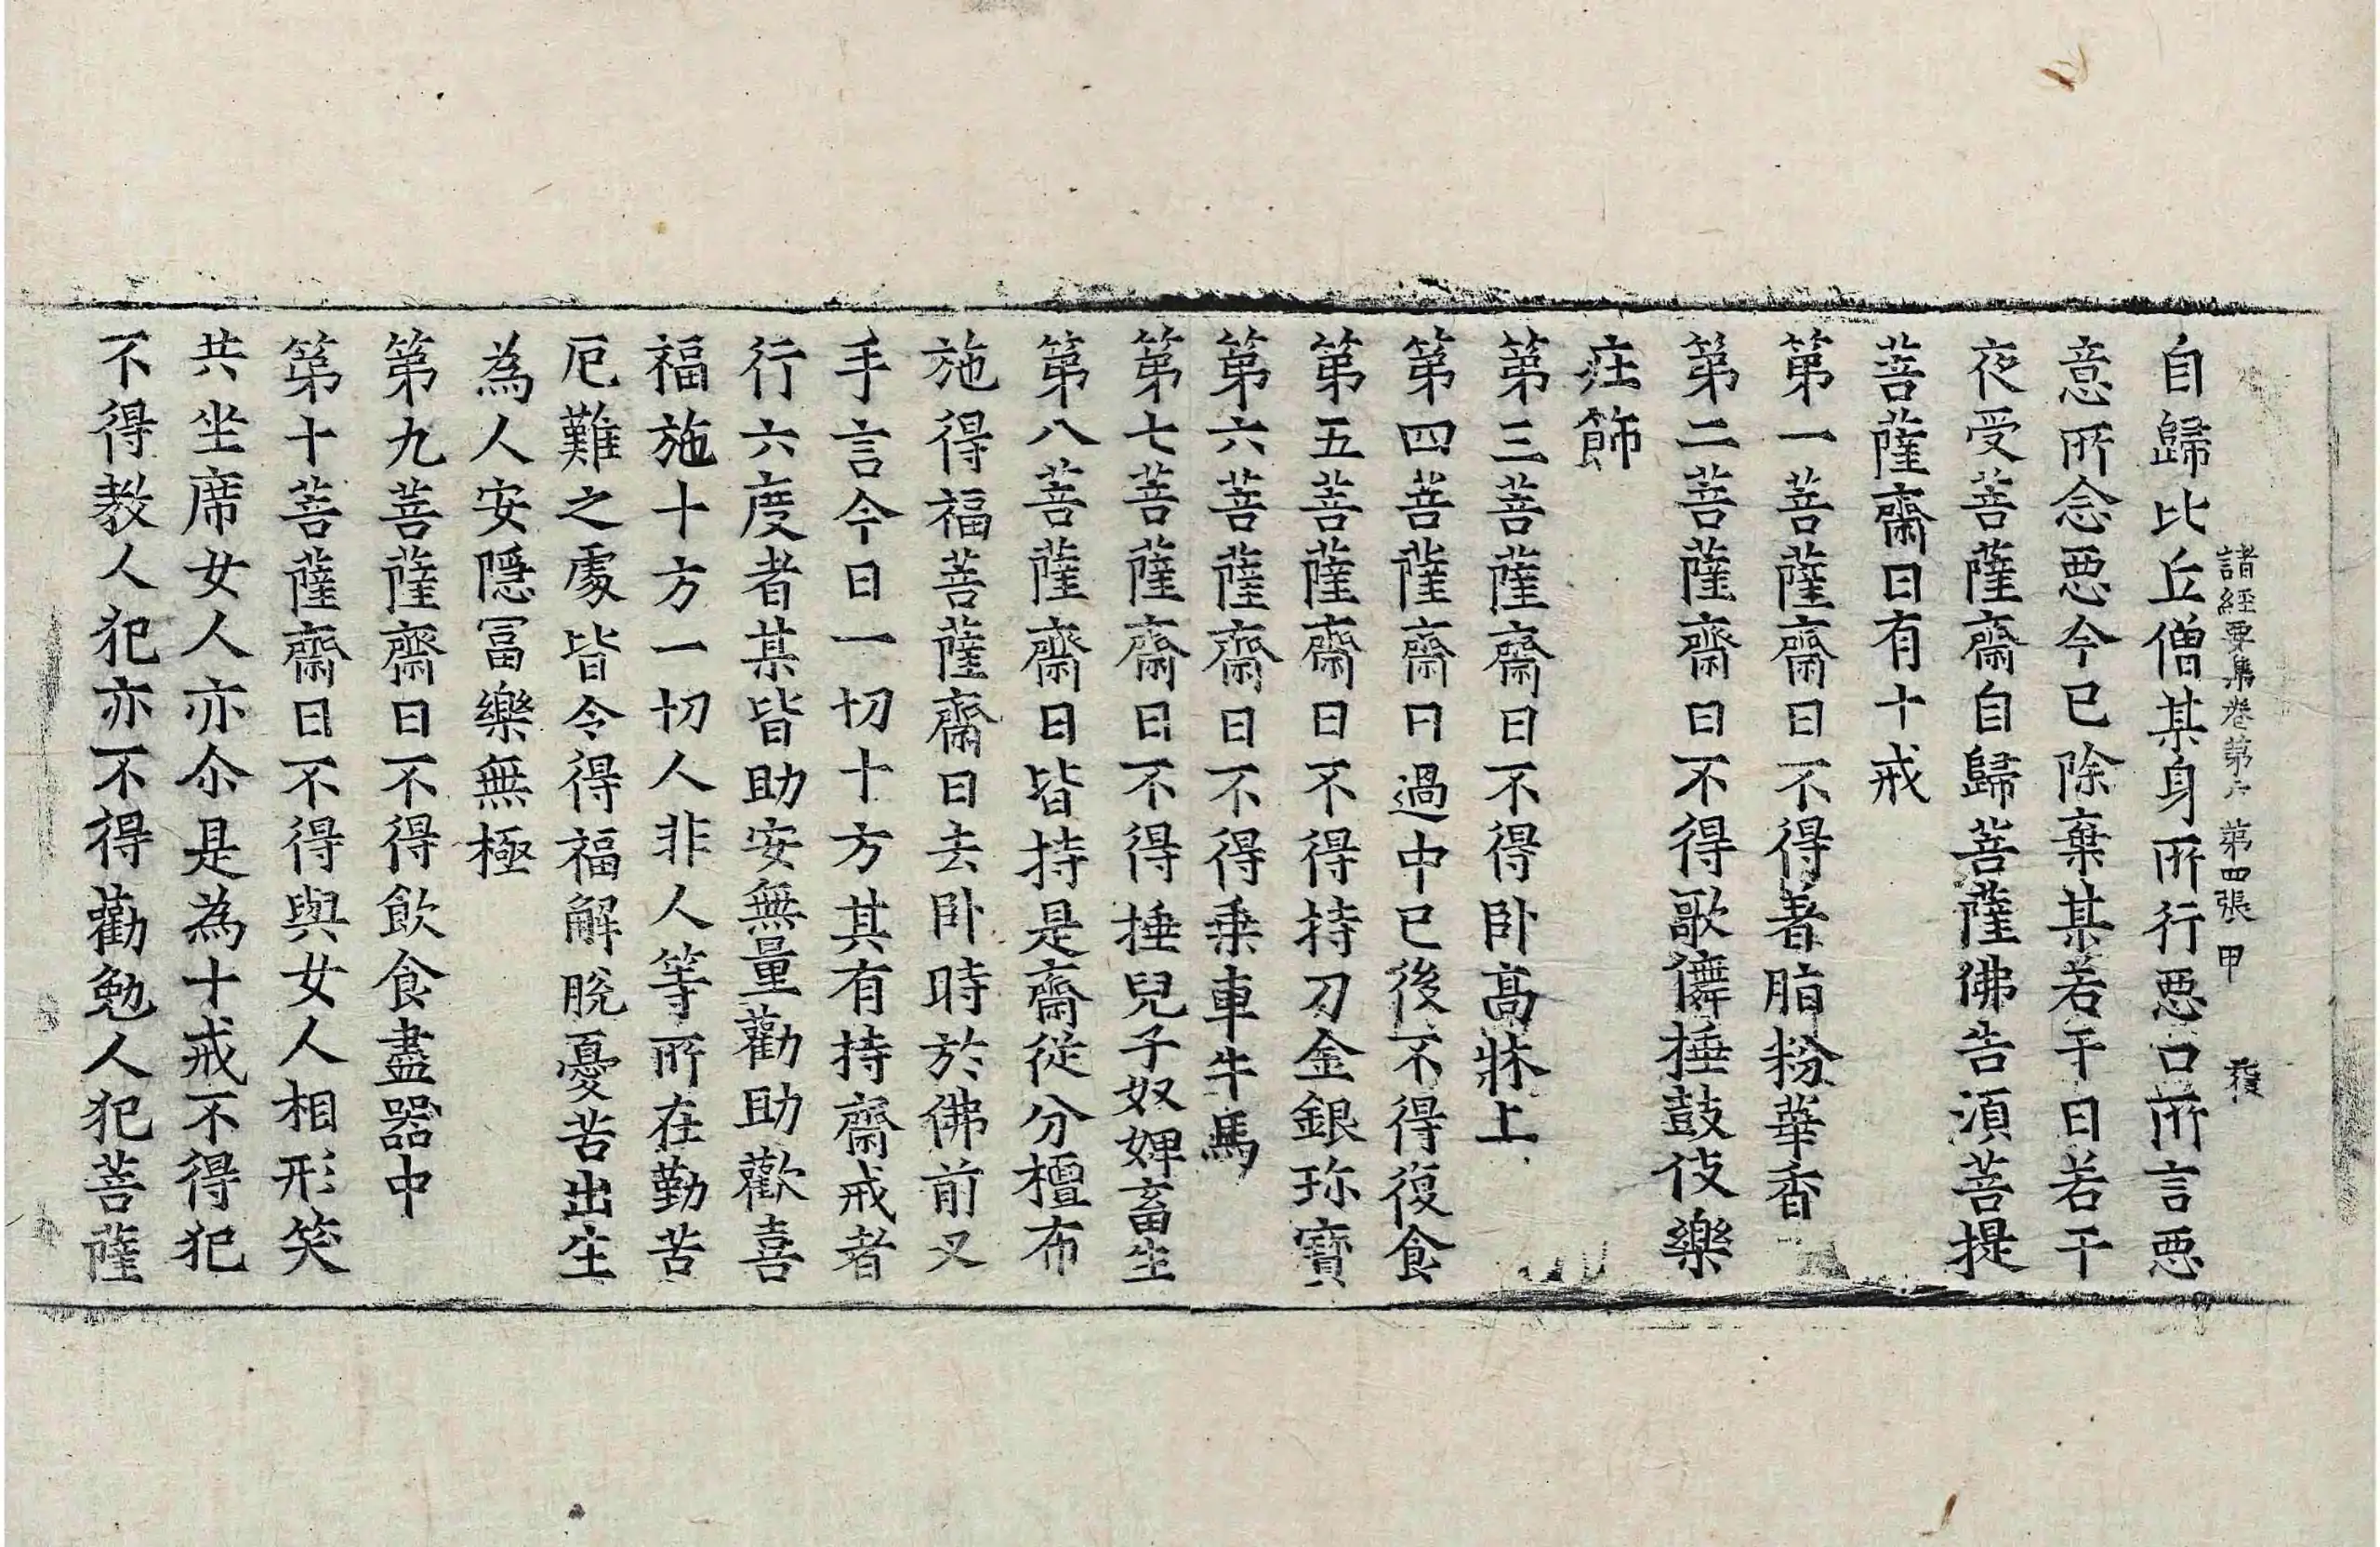 諸經要集卷第六 第四張 甲
自歸比丘僧某身所行惡口所言惡
意所念惡今已除棄某若干日若干
夜受菩薩齋自歸菩薩佛告須菩提
菩薩齋日有十戒
第一菩薩齋日不得著脂粉華香
第二菩薩齋日不得歌儛捶鼓伎樂
莊飾
第三菩薩齋日不得卧高牀上
第四菩薩齋日過中已後不得復食
第五菩薩齋日不得持刀金銀珎寶
第六菩薩齋日不得乗車牛馬
第七菩薩齋日不得捶兒子奴婢畜生
第八菩薩齋日皆持是齋從分檀布
施得福菩薩齋日去卧時於佛前叉
手言今日一切十方其有持齋戒者
行六度者某皆助安無量勸助歡喜
福施十方一切人非人等所在勤苦
厄難之處皆令得福解脫憂苦出生
為人安隱冨樂無極
第九菩薩齋日不得飲食盡器中
第十菩薩齋日不得與女人相形笑
共坐席女人亦尒是為十戒不得犯
不得教人犯亦不得勸勉人犯菩薩